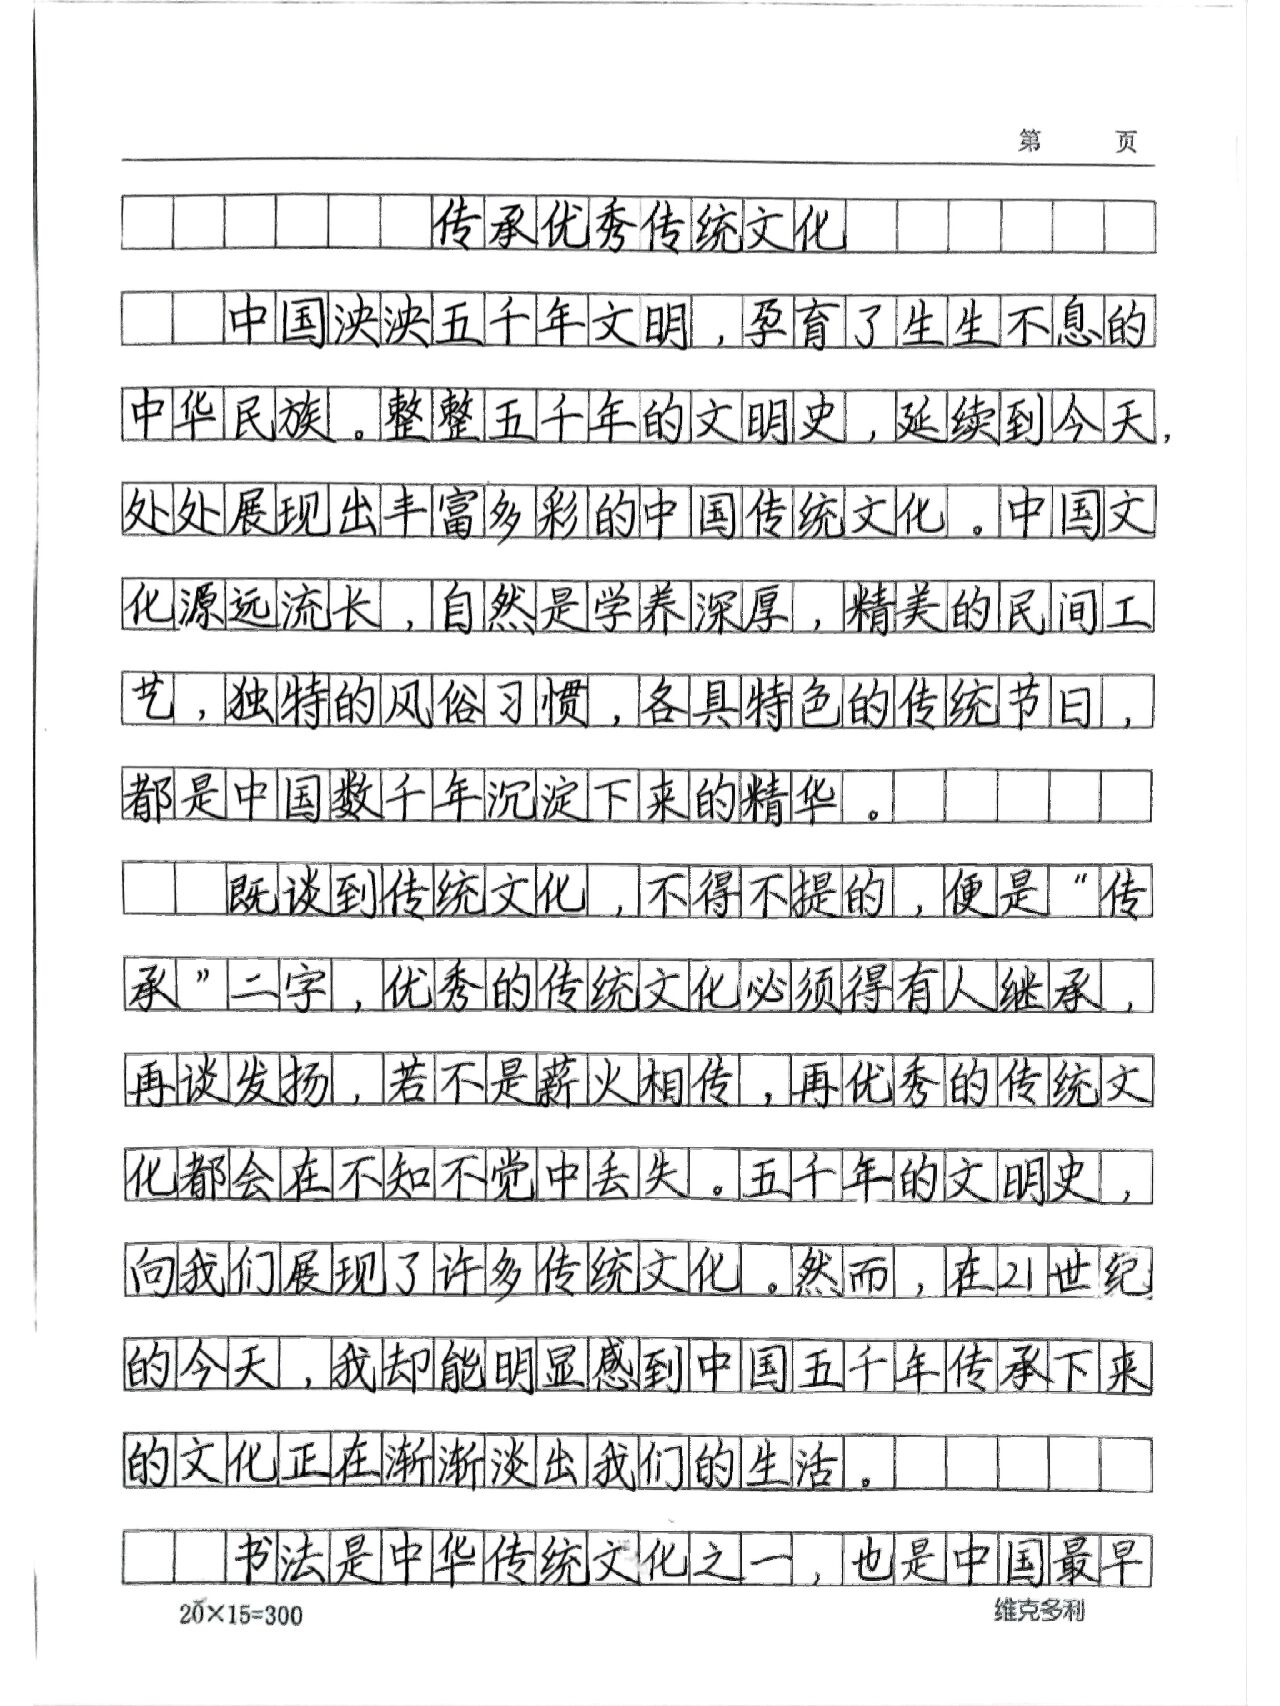 第 页
传承优秀传统文化
中国泱泱五千年文明，孕育了生生不息的
中华民族。整整五千年的文明史，延续到今天，
处处展现出丰富多彩的中国传统文化。中国文
化源远流长，自然是学养深厚，精美的民间工
艺，独特的风俗习惯，各具特色的传统节日，
都是中国数千年沉淀下来的精华。
既谈到传统文化，不得不提的，便是“传
承”二字，优秀的传统文化必须得有人继承，
再谈发扬，若不是薪火相传，再优秀的传统文
化都会在不知不觉中丢失。五千年的文明史，
向我们展现了许多传统文化。然而，在21世纪
的今天，我却能明显感到中国五千年传承下来
的文化正在渐渐淡出我们的生活。
书法是中华传统文化之一，也是中国最早
20×15=300 维克多利